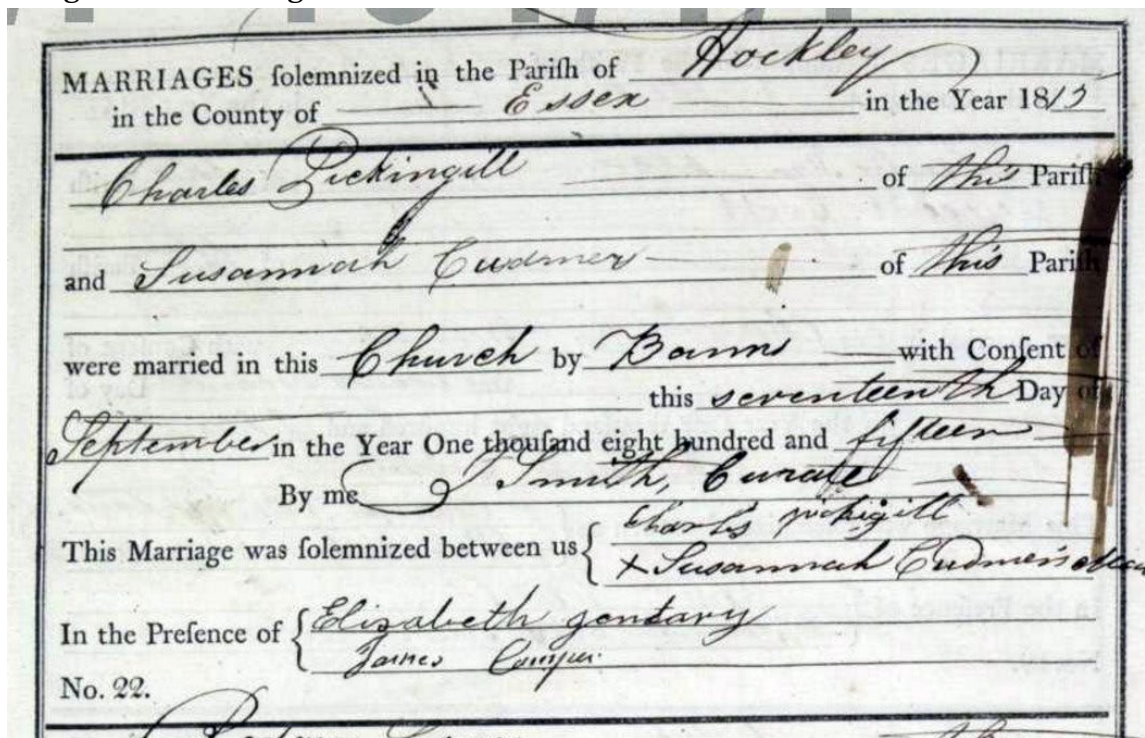 MARRIAGES ſolemnized in the Pariſh of Hockley
in the County of Essex in the Year 1815
Charles Pickingill of this Pariſh
and Susannah Cudmer of this Pariſh
were married in this Church by Banns with Conſent of
this seventeenth Day of
September in the Year One thouſand eight hundred and fifteen
By me J Smith, Curate
This Marriage was ſolemnized between us { Charles pickigill
x Susannah Cudmer's
In the Preſence of { Elizabeth gentary
James
No. 22.